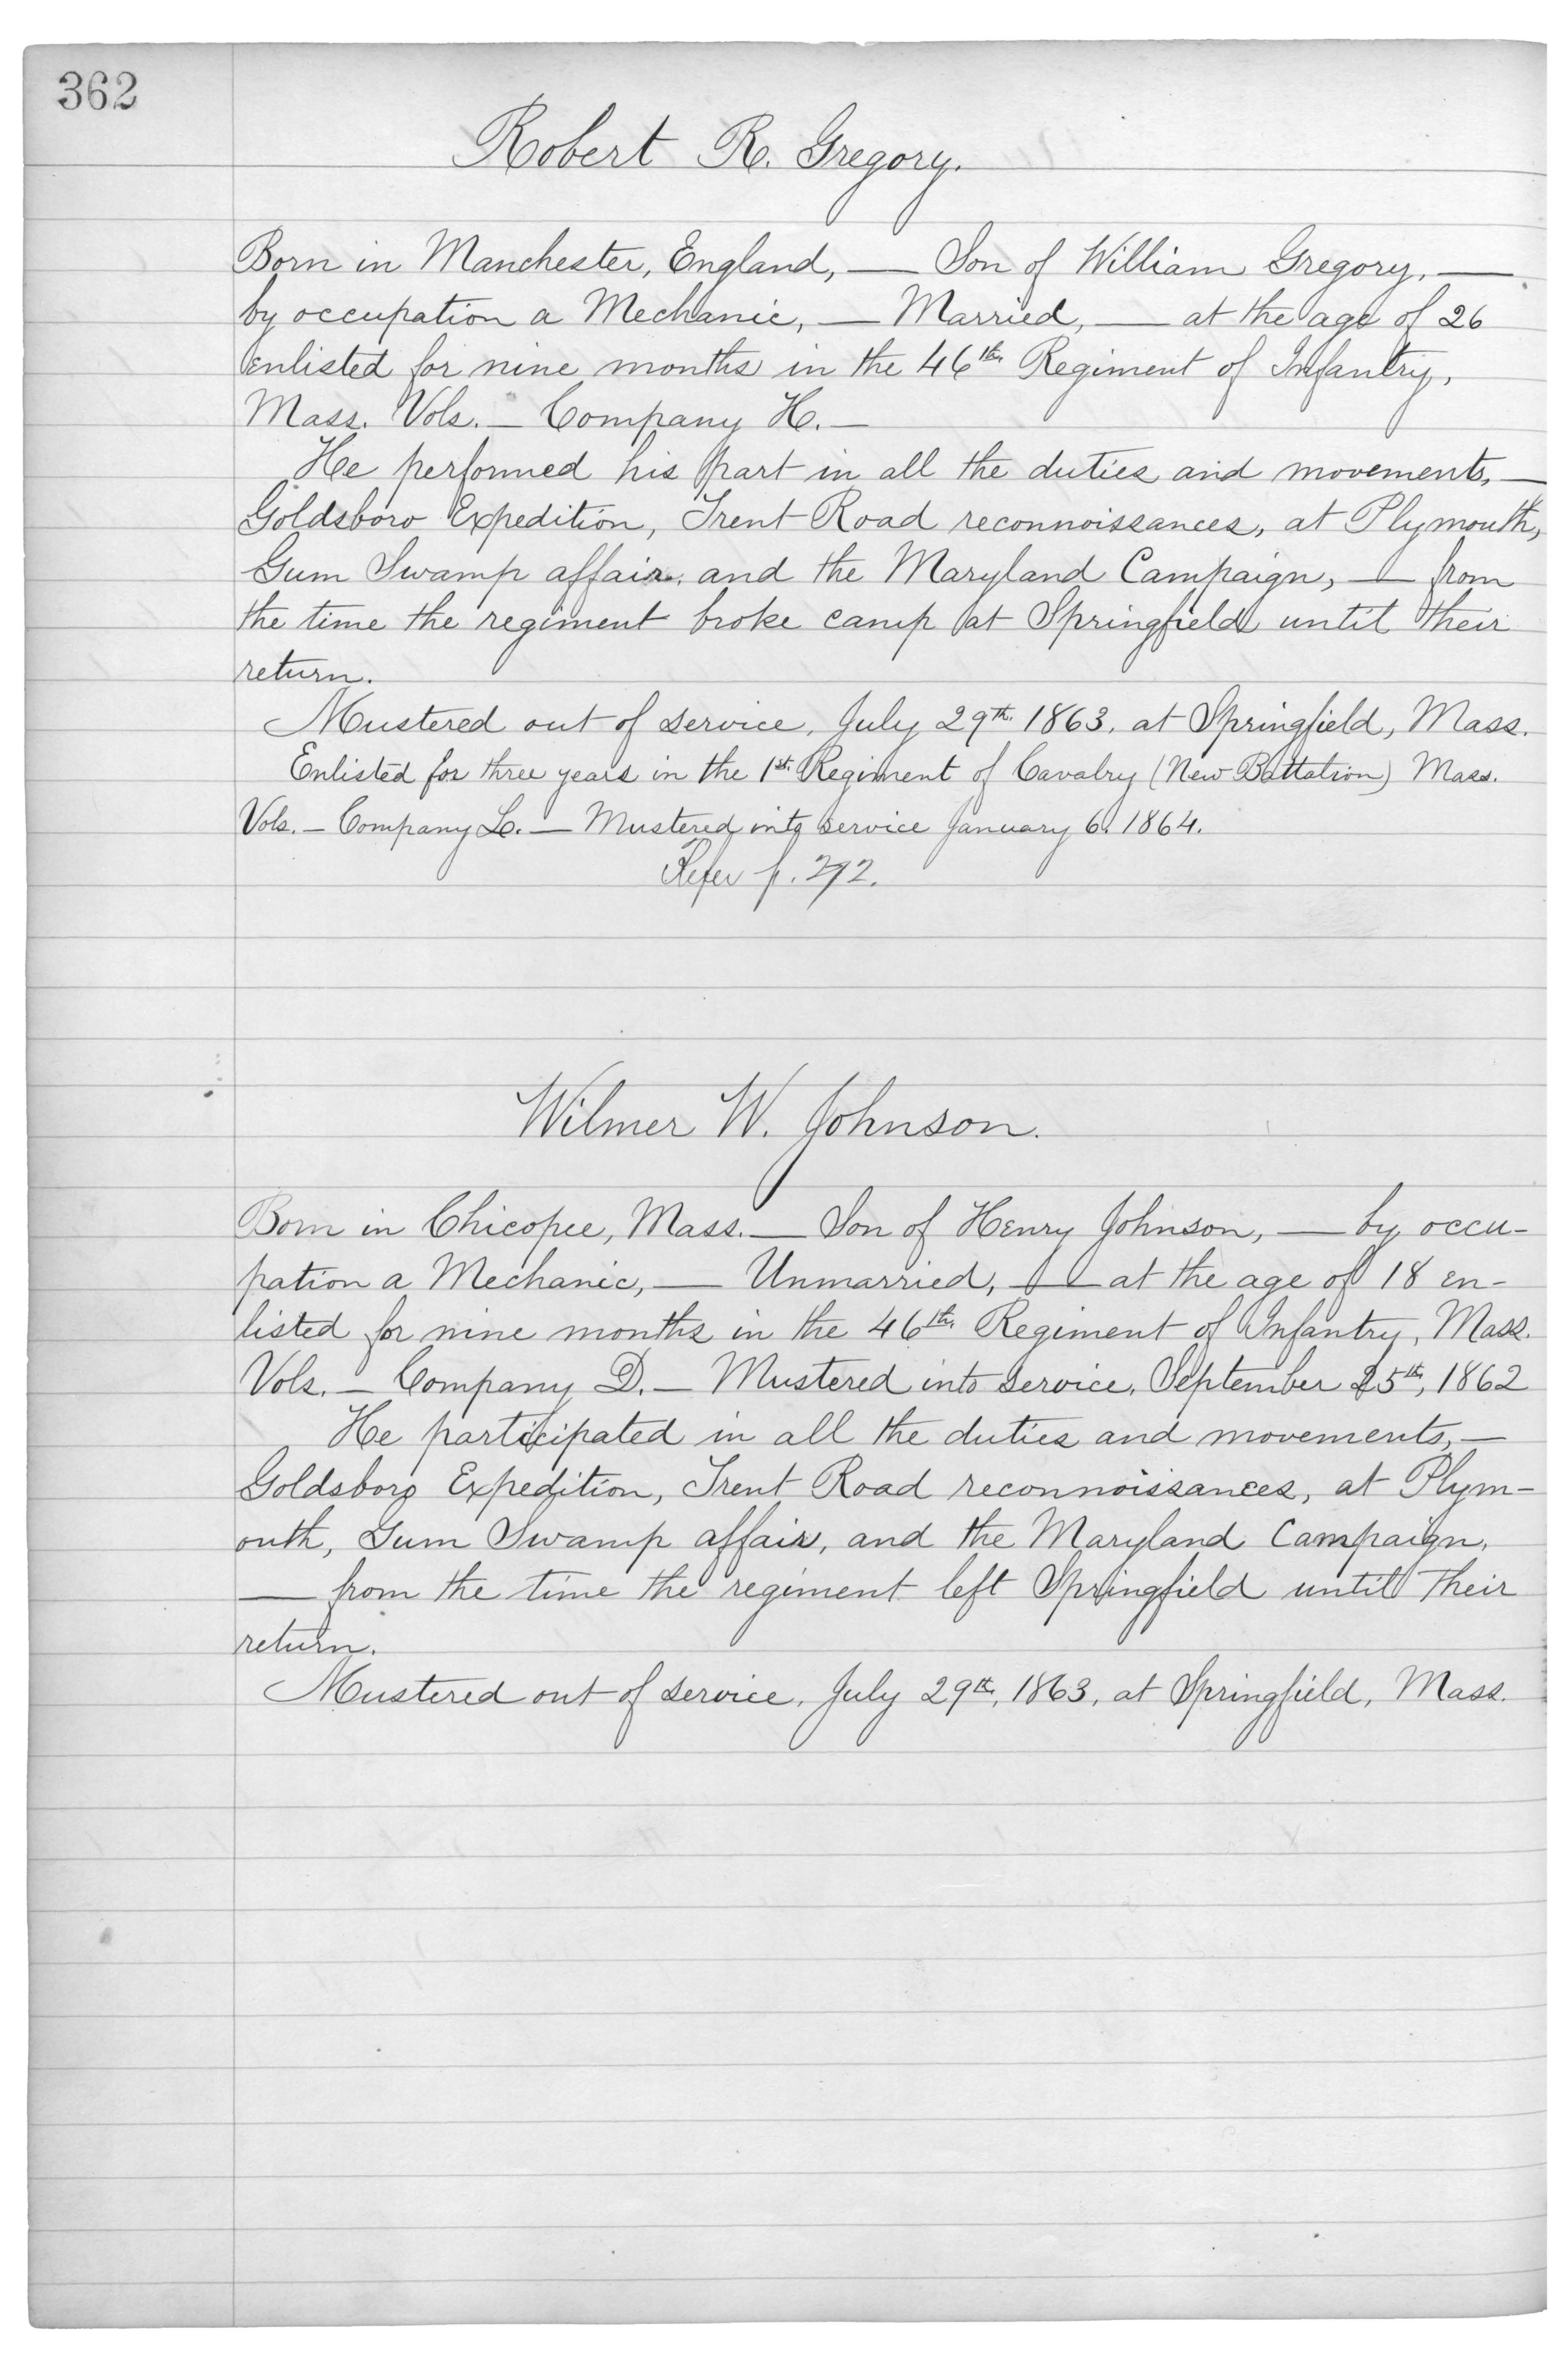 362
Robert R. Gregory.
Born in Manchester, England, — Son of William Gregory, —
by occupation a Mechanic, — Married, — at the age of 26
enlisted for nine months in the 46th. Regiment of Infantry,
Mass. Vols. — Company H. —
He performed his part in all the duties and movements, —
Goldsboro Expedition, Trent Road reconnoissances, at Plymouth,
Gum Swamp affair, and the Maryland Campaign, — from
the time the regiment broke camp at Springfield until their
return.
Mustered out of service, July 29th. 1863, at Springfield, Mass.
Enlisted for three years in the 1st. Regiment of Cavalry (New Battation) Mass.
Vols. — Company L. — Mustered into service January 6. 1864.
Refer p. 272.
Wilmer W. Johnson.
Born in Chicopee, Mass. — Son of Henry Johnson, — by occu-
pation a Mechanic, — Unmarried, — at the age of 18 en-
listed for nine months in the 46th. Regiment of Infantry, Mass.
Vols. — Company D. — Mustered into service, September 25th, 1862
He participated in all the duties and movements, —
Goldsboro Expedition, Trent Road reconnoissances, at Plym-
outh, Gum Swamp affair, and the Maryland Campaign,
— from the time the regiment left Springfield until their
return.
Mustered out of service, July 29th, 1863, at Springfield, Mass.